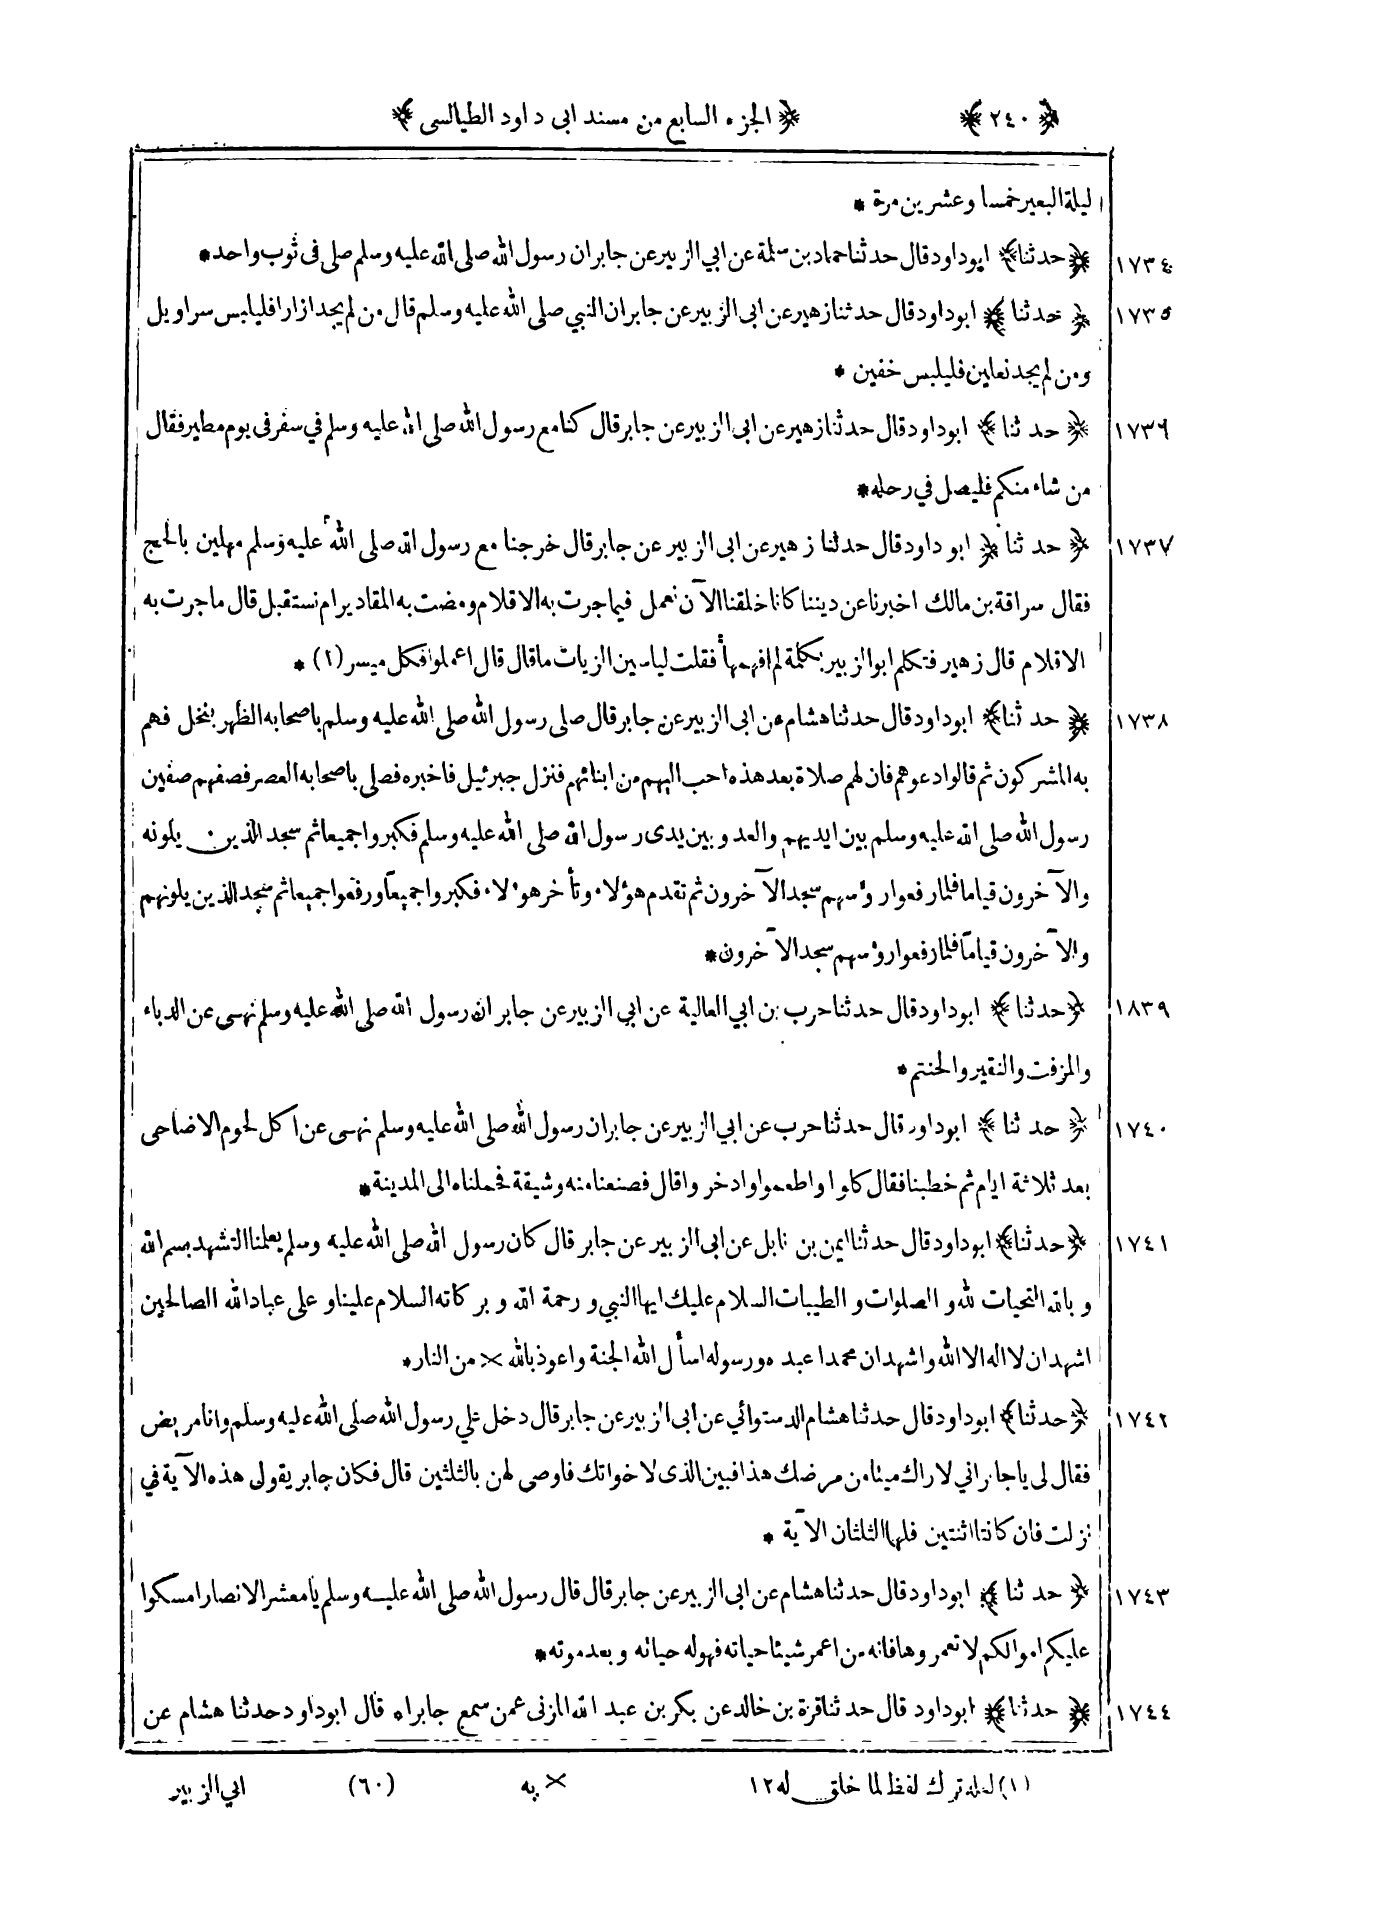 ﴿ ٢٤٠ ﴾ ﴿ الجزء السابع من مسند ابى داود الطيالسى ﴾
ليلة البعير خمسا وعشرين مرة *
١٧٣٤ ﴿ حدثنا ﴾ ابوداود قال حدثنا حماد بن سلمة عن ابي الزبير عن جابر ان رسول الله صلى الله عليه وسلم صلى فى ثوب واحد *
١٧٣٥ ﴿ حدثنا ﴾ ابوداود قال حدثنا زهير عن ابى الزبير عن جابر ان النبي صلى الله عليه وسلم قال من لم يجد ازارا فليلبس سراويل
ومن لم يجد نعلين فليلبس خفين *
١٧٣٦ ﴿ حدثنا ﴾ ابوداود قال حدثنا زهير عن ابى الزبير عن جابر قال كنا مع رسول الله صلى الله عليه وسلم في سفر فى يوم مطير فقال
من شاء منكم فليصل في رحله *
١٧٣٧ ﴿ حدثنا ﴾ ابو داود قال حدثنا زهير عن ابى الزبير عن جابر قال خرجنا مع رسول الله صلى الله عليه وسلم مهلين بالحج
فقال سراقة بن مالك اخبرنا عن ديننا كانا خلقنا الآن نعمل فيما جرت به الاقلام ومضت به المقادير ام نستقبل قال ما جرت به
الاقلام قال زهير فتكلم ابو الزبير بكلمة لم افهمها فقلت لياسين الزيات ما قال قال اعملوا فكل ميسر (١) *
١٧٣٨ ﴿ حدثنا ﴾ ابوداود قال حدثنا هشام عن ابى الزبير عن جابر قال صلى رسول الله صلى الله عليه وسلم باصحابه الظهر بنخل فهم
به المشركون ثم قالوا دعوهم فان لهم صلاة بعد هذه احب اليهم من ابنائهم فنزل جبرئيل فاخبره فصلى باصحابه العصر فصفهم صفين
رسول الله صلى الله عليه وسلم بين ايديهم والعدو بين يدى رسول الله صلى الله عليه وسلم فكبروا جميعا ثم سجد الذين يلونه
والآخرون قياما فلما رفعوا رؤسهم سجد الآخرون ثم تقدم هؤلاء وتأخر هؤلاء فكبروا جميعاً ورفعوا جميعا ثم سجد الذين يلونهم
والآخرون قياماً فلما رفعوا رؤسهم سجد الآخرون *
١٨٣٩ ﴿ حدثنا ﴾ ابوداود قال حدثنا حرب بن ابي العالية عن ابي الزبير عن جابر ان رسول الله صلى الله عليه وسلم نهى عن الدباء
والمزفت والنقير والحنتم *
١٧٤٠ ﴿ حدثنا ﴾ ابوداود قال حدثنا حرب عن ابي الزبير عن جابر ان رسول الله صلى الله عليه وسلم نهى عن اكل لحوم الاضاحى
بعد ثلاثة ايام ثم خطبنا فقال كلوا واطعموا وادخروا قال فصنعنا منه وشيقة فحملناه الى المدينة *
١٧٤١ ﴿ حدثنا ﴾ ابوداود قال حدثنا ايمن بن نابل عن ابى الزبير عن جابر قال كان رسول الله صلى الله عليه وسلم يعلمنا التشهد بسم الله
وبالله التحيات لله والصلوات والطيبات السلام عليك ايها النبي ورحمة الله وبركاته السلام علينا وعلى عباد الله الصالحين
اشهد ان لا اله الا الله واشهد ان محمدا عبده ورسوله اسأل الله الجنة واعوذ بالله × من النار *
١٧٤٢ ﴿ حدثنا ﴾ ابوداود قال حدثنا هشام الدستوائي عن ابى الزبير عن جابر قال دخل علي رسول الله صلى الله عليه وسلم وانا مريض
فقال لى يا جابر اني لا راك ميتا من مرضك هذا فبين الذى لاخواتك فاوصى لهن بالثلثين قال فكان جابر يقول هذه الآية في
نزلت فان كانتا اثنتين فلهما الثلثان الآية *
١٧٤٣ ﴿ حدثنا ﴾ ابوداود قال حدثنا هشام عن ابى الزبير عن جابر قال قال رسول الله صلى الله عليه وسلم يا معشر الانصار امسكوا
عليكم اموالكم لا تعمروها فانه من اعمر شيئا حياته فهو له حياته وبعد موته *
١٧٤٤ ﴿ حدثنا ﴾ ابوداود قال حدثنا قرة بن خالد عن بكر بن عبد الله المزنى عمن سمع جابرا * قال ابوداود حدثنا هشام عن
(١) لعله ترك لفظ لما خلق له ١٢ × به (٦٠) ابي الزبير